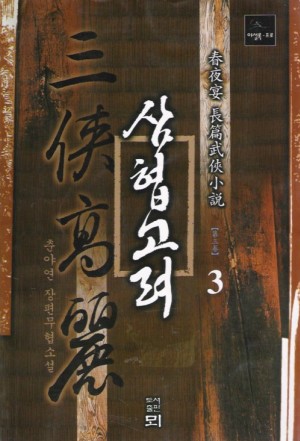 春夜宴 長篇武俠小說
[第三卷]
3
삼협고려
三俠高麗
춘야연 장편무협소설
도서
출판
뫼